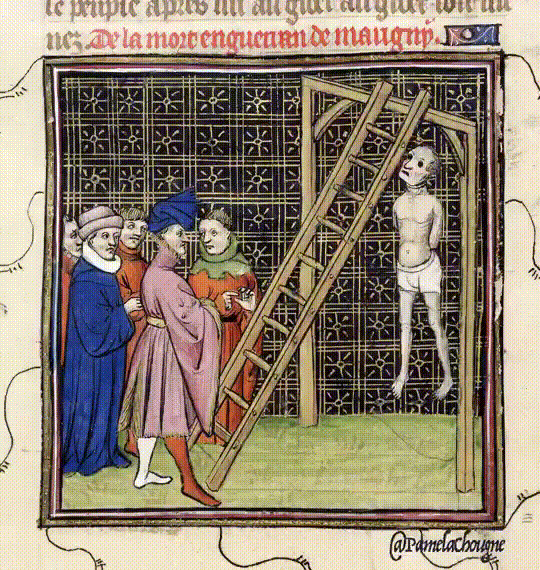 le peuple apres lui
nez. De la mort enguerran de maugny.
@PamelaChougne